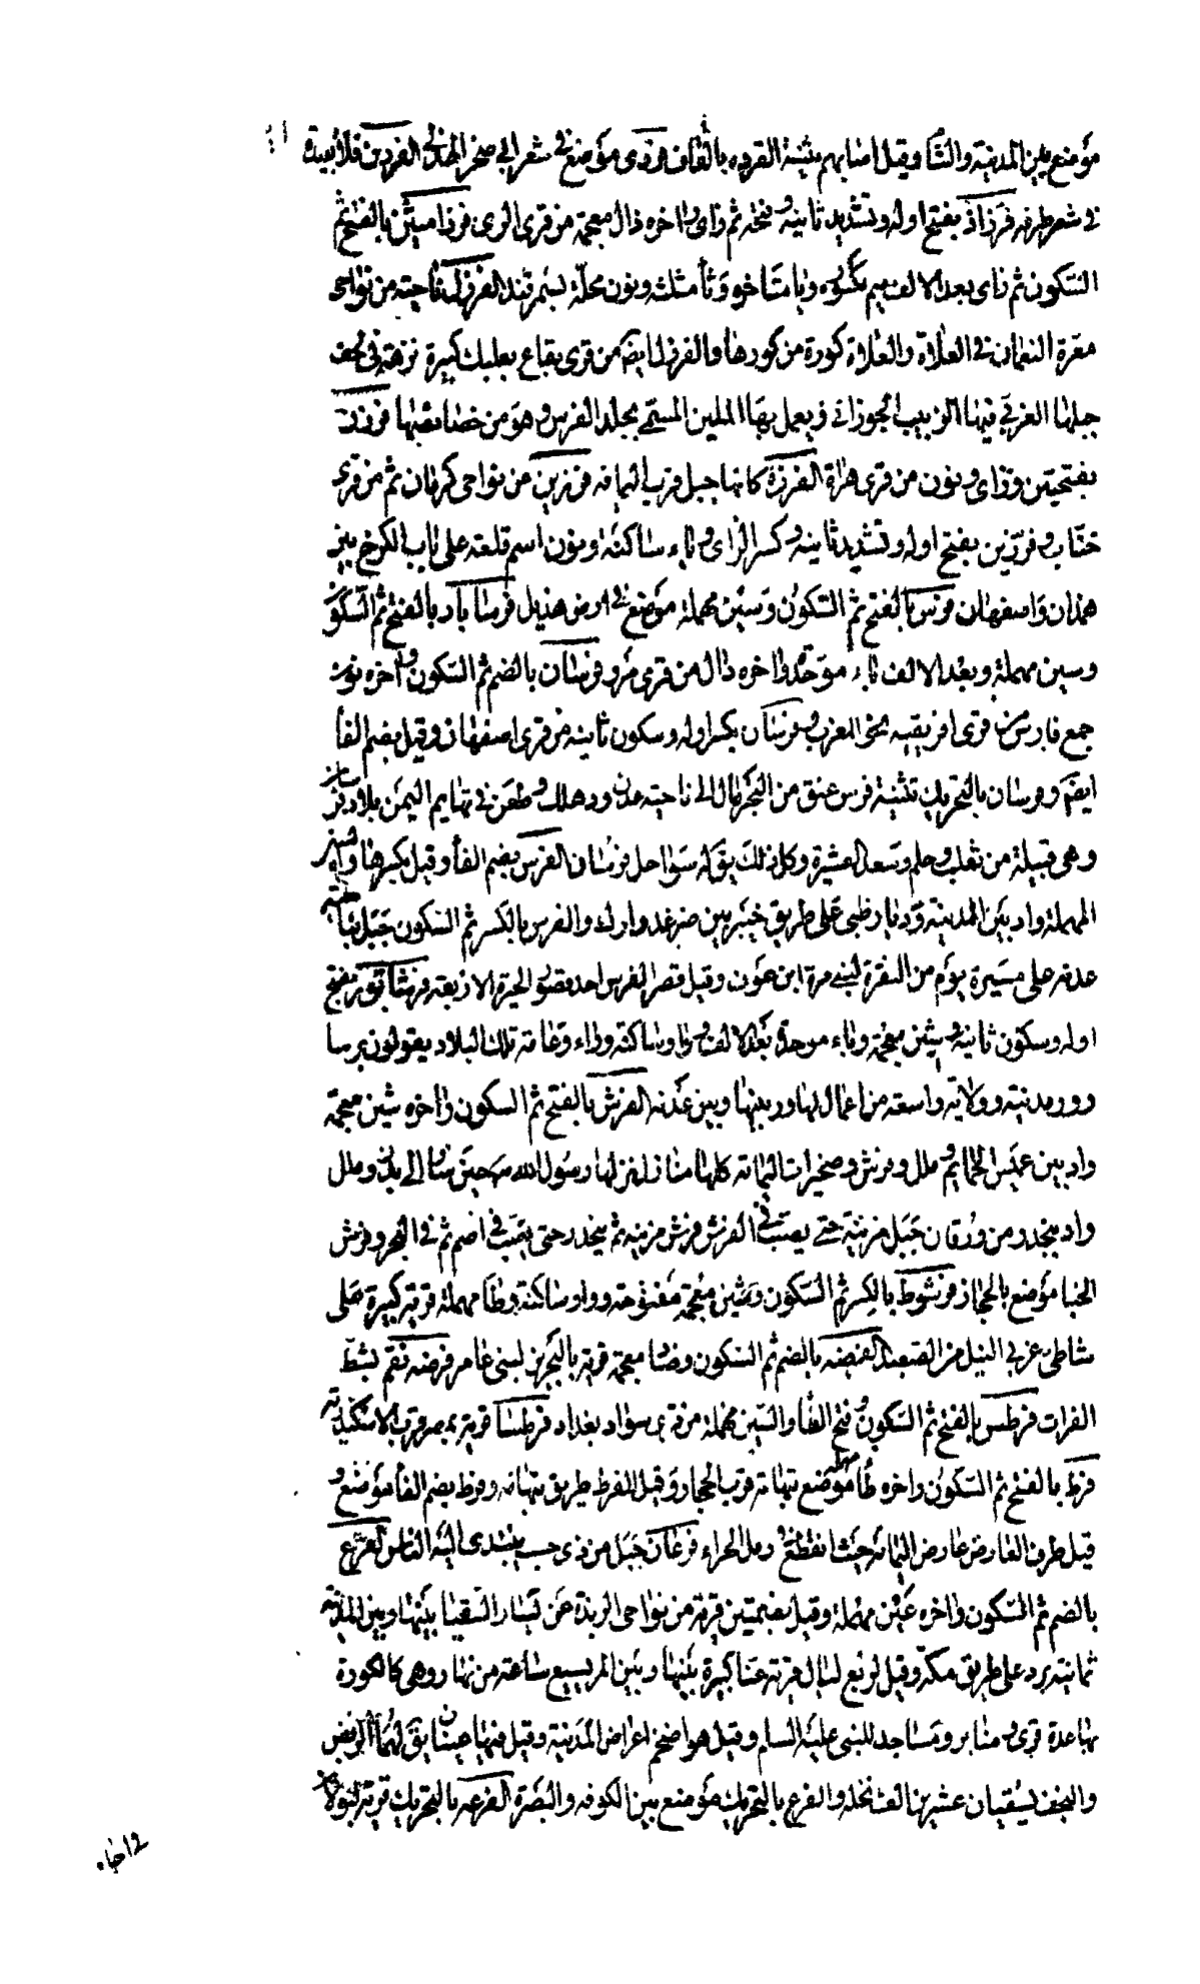 موضع بين المدينة والشام وقيل اصابهم بثنية القردة بالقاف فردى موضع فى شعر ابى صخر الهذلى الفردين فلاة بعيدة
فى شعر طرفه فرزاذ بفتح اوله وتشديد ثانيه وفتحه ثم زاى واخره ذال معجمة من قرى الرى فرزاميثن بالفتح ثم
السكون ثم زاى بعد الالف ميم مكسوره ويا مثناة وثا مثلثه ونون محلّة بسمرقند الفرزل ناحيته من نواحى
معرة النعمان فى العلاة والعلاة كورة من كورها والفرزل ايضا من قرى بقاع بعلبك كبيرة نزهة فى لحف
جبلها الغربى فيها الزبيب الجوزانى ويعمل بها الملبن المسمى بجلد الفرس وهو من خصائصها فرزن
بفتحيتن وزاى ونون من قرى هراة الفرزة كانها جبل قرب اليمامه فرزين من نواحى كرمان ثم من قرى
خناب وفرّزين بفتح اوله وتشديد ثانيه وكسر الزاى وياء ساكنة ونون اسم قلعته على باب الكرخ بين
همذان واصفهان فرس بالفتح ثم السكون وسين مهملة موضع فى ارض هذيل فرساباد بالفتح ثم السكو
وسين مهملة وبعد الالف باء موحدة واخره ذال من قرى مرو فرسان بالضم ثم السكون واخره نون
جمع فارس من قرى افريقيه نحو المغرب وفرسان بكسر اوله وسكون ثانيه من قرى اصفهان وقيل بضم الفا
ايضا وفرسان بالتحريك تثنية فرس عنق من البحر مال الى ناحيته عدن ودهلك وطعن فى تهايم اليمن بلاد بنى فرسان
وهى قبيلة من تغلب وحلم وسعد العشيرة وكل ذلك يق له سواحل فرسان الفرس بضم الفأ وقيل بكسرها والسين
المهملة واد بين المدينة وديار طى على طريق خيبر بين ضرغد واول والفرس بالكسر ثم السكون جبل بناحيته
عدنه على مسيرة يوم من النقرة لبنى مرة ابن عون وقيل قصر الفرس احد قصور الحيرة الاربعه فرشابور بفتح
اوله وسكون ثانيه وشين معجمة وباء موحدة بعد الالف واو ساكنه وراء وعامة تلك البلاد يقولون برسا
وور مدينة وولايته واسعته من اعمال لهاور بينها وبين غزنه الفرش بالفتح ثم السكون واخره شين معجمة
واد بين عميس الحمايم وملل وفرش وصخيرات اليمامه كلها منازل نزلها رسول الله ص حين سار الى بدر وملل
واد ينحدر من ورقان جبل مزينة حتى يصب فى الفرش فرش مزينه ثم ينحدر حتى يصب فى اضم ثم فى البحر وفرش
الجبا موضع بالحجاز فرشوط بالكسر ثم السكون وشين معجمة مفتوحته وواو ساكنة وطا مهملة قريته كبيرة على
شاطى غربى النيل من الصعيد الفرضه بالضم ثم السكون وضاد معجمة قرية بالبحرين لبنى عامر فرضه نعم بشط
الفرات فرطس بالفتح ثم السكون وفتح الطا والسين مهملة من قرى سواد بغداد فرطسا قريته بمصر قرب الاسكندريته
فرط بالفتح ثم السكون واخره طا مهملة موضع بتهامة قرب الحجاز وقيل الفرط طريق تهامه وفرط بضم الفا موضع و
قيل طرف العارض عارض اليمامه حيث انقطع فى رمل الجزاء فرعان جبل من ذى خشب يتبدى اليه الناس الفرع
بالضم ثم السكون واخره عين مهملة وقيل بضمتين قرية من نواحى الربذة عن يسار السقيا بينها وبين المدينه
ثمانيته برد على طريق مكة وقيل اربع ليال قريته غنا كبيرة بينها وبين المريسيع ساعته من نهار وهى كالكورة
بها عدة قرى و منابر ومساجد للنبى عليه السلام وقيل هو اضخم اعراض المدينة وقيل فيها عينان يق لهما الربض
والنجف يسقيان عشرين الف نخله والفرع بالتحريك موضع بين الكوفه والبصرة الفرعه بالتحريك قرية لبولان